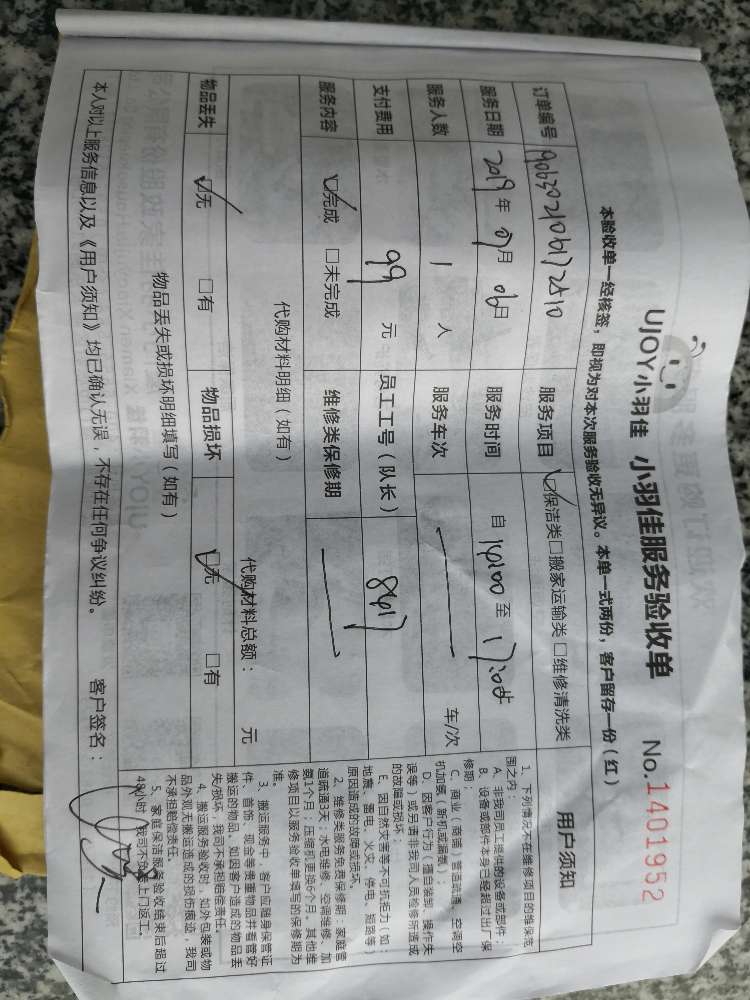 UJOY小羽佳 小羽佳服务验收单 No.1401952
本验收单一经核签，即视为对本次服务验收无异议。本单一式两份，客户留存一份（红）
订单编号 服务项目 ☑保洁类□搬家运输类□维修清洗类
服务日期 2019年07月06日 服务时间 自14:00至17:00
服务人数 1 人 服务车次 车/次
支付费用 99 元 员工工号（队长） 8617
服务内容 ☑完成 □未完成 维修类保修期
代购材料明细（如有） 代购材料总额： 元
物品丢失 ☑无 □有 物品损坏 ☑无 □有
物品丢失或损坏明细填写（如有）
本人对以上服务信息以及《用户须知》均已确认无误，不存在任何争议纠纷。 客户签名：
用户须知
1、下列情况不在维修项目的维保范
围之内：
A、非我司员工提供的设备或部件；
B、设备或部件本身已经超过出厂保
修期；
C、商业（商铺）管道疏通、空调空
机加氟（新机或漏氟）；
D、因客户行为（擅自装卸、操作失
误等）或另请非我司人员检修所造成
的故障或损坏；
E、因自然灾害等不可抗拒力（如：
地震、雷电、火灾、停电、短路等）
原因造成的故障或损坏。
2、维修类服务免费保修期：家庭管
道疏通3天；水电维修、空调维修、加
氨1个月；压缩机更换6个月，其他维
修项目以服务验收单填写的保修期为
准。
3、搬运服务中，客户应随身保管证
件、首饰、现金等贵重物品并看管好
搬运的物品，如因客户造成的物品丢
失/损坏，我司不承担赔偿责任。
4、搬运服务验收时，如外包装或物
品外观无搬运造成的损伤痕迹，我司
不承担赔偿责任。
5、家庭保洁服务验收结束后超过
48小时，我司不 上门返工。